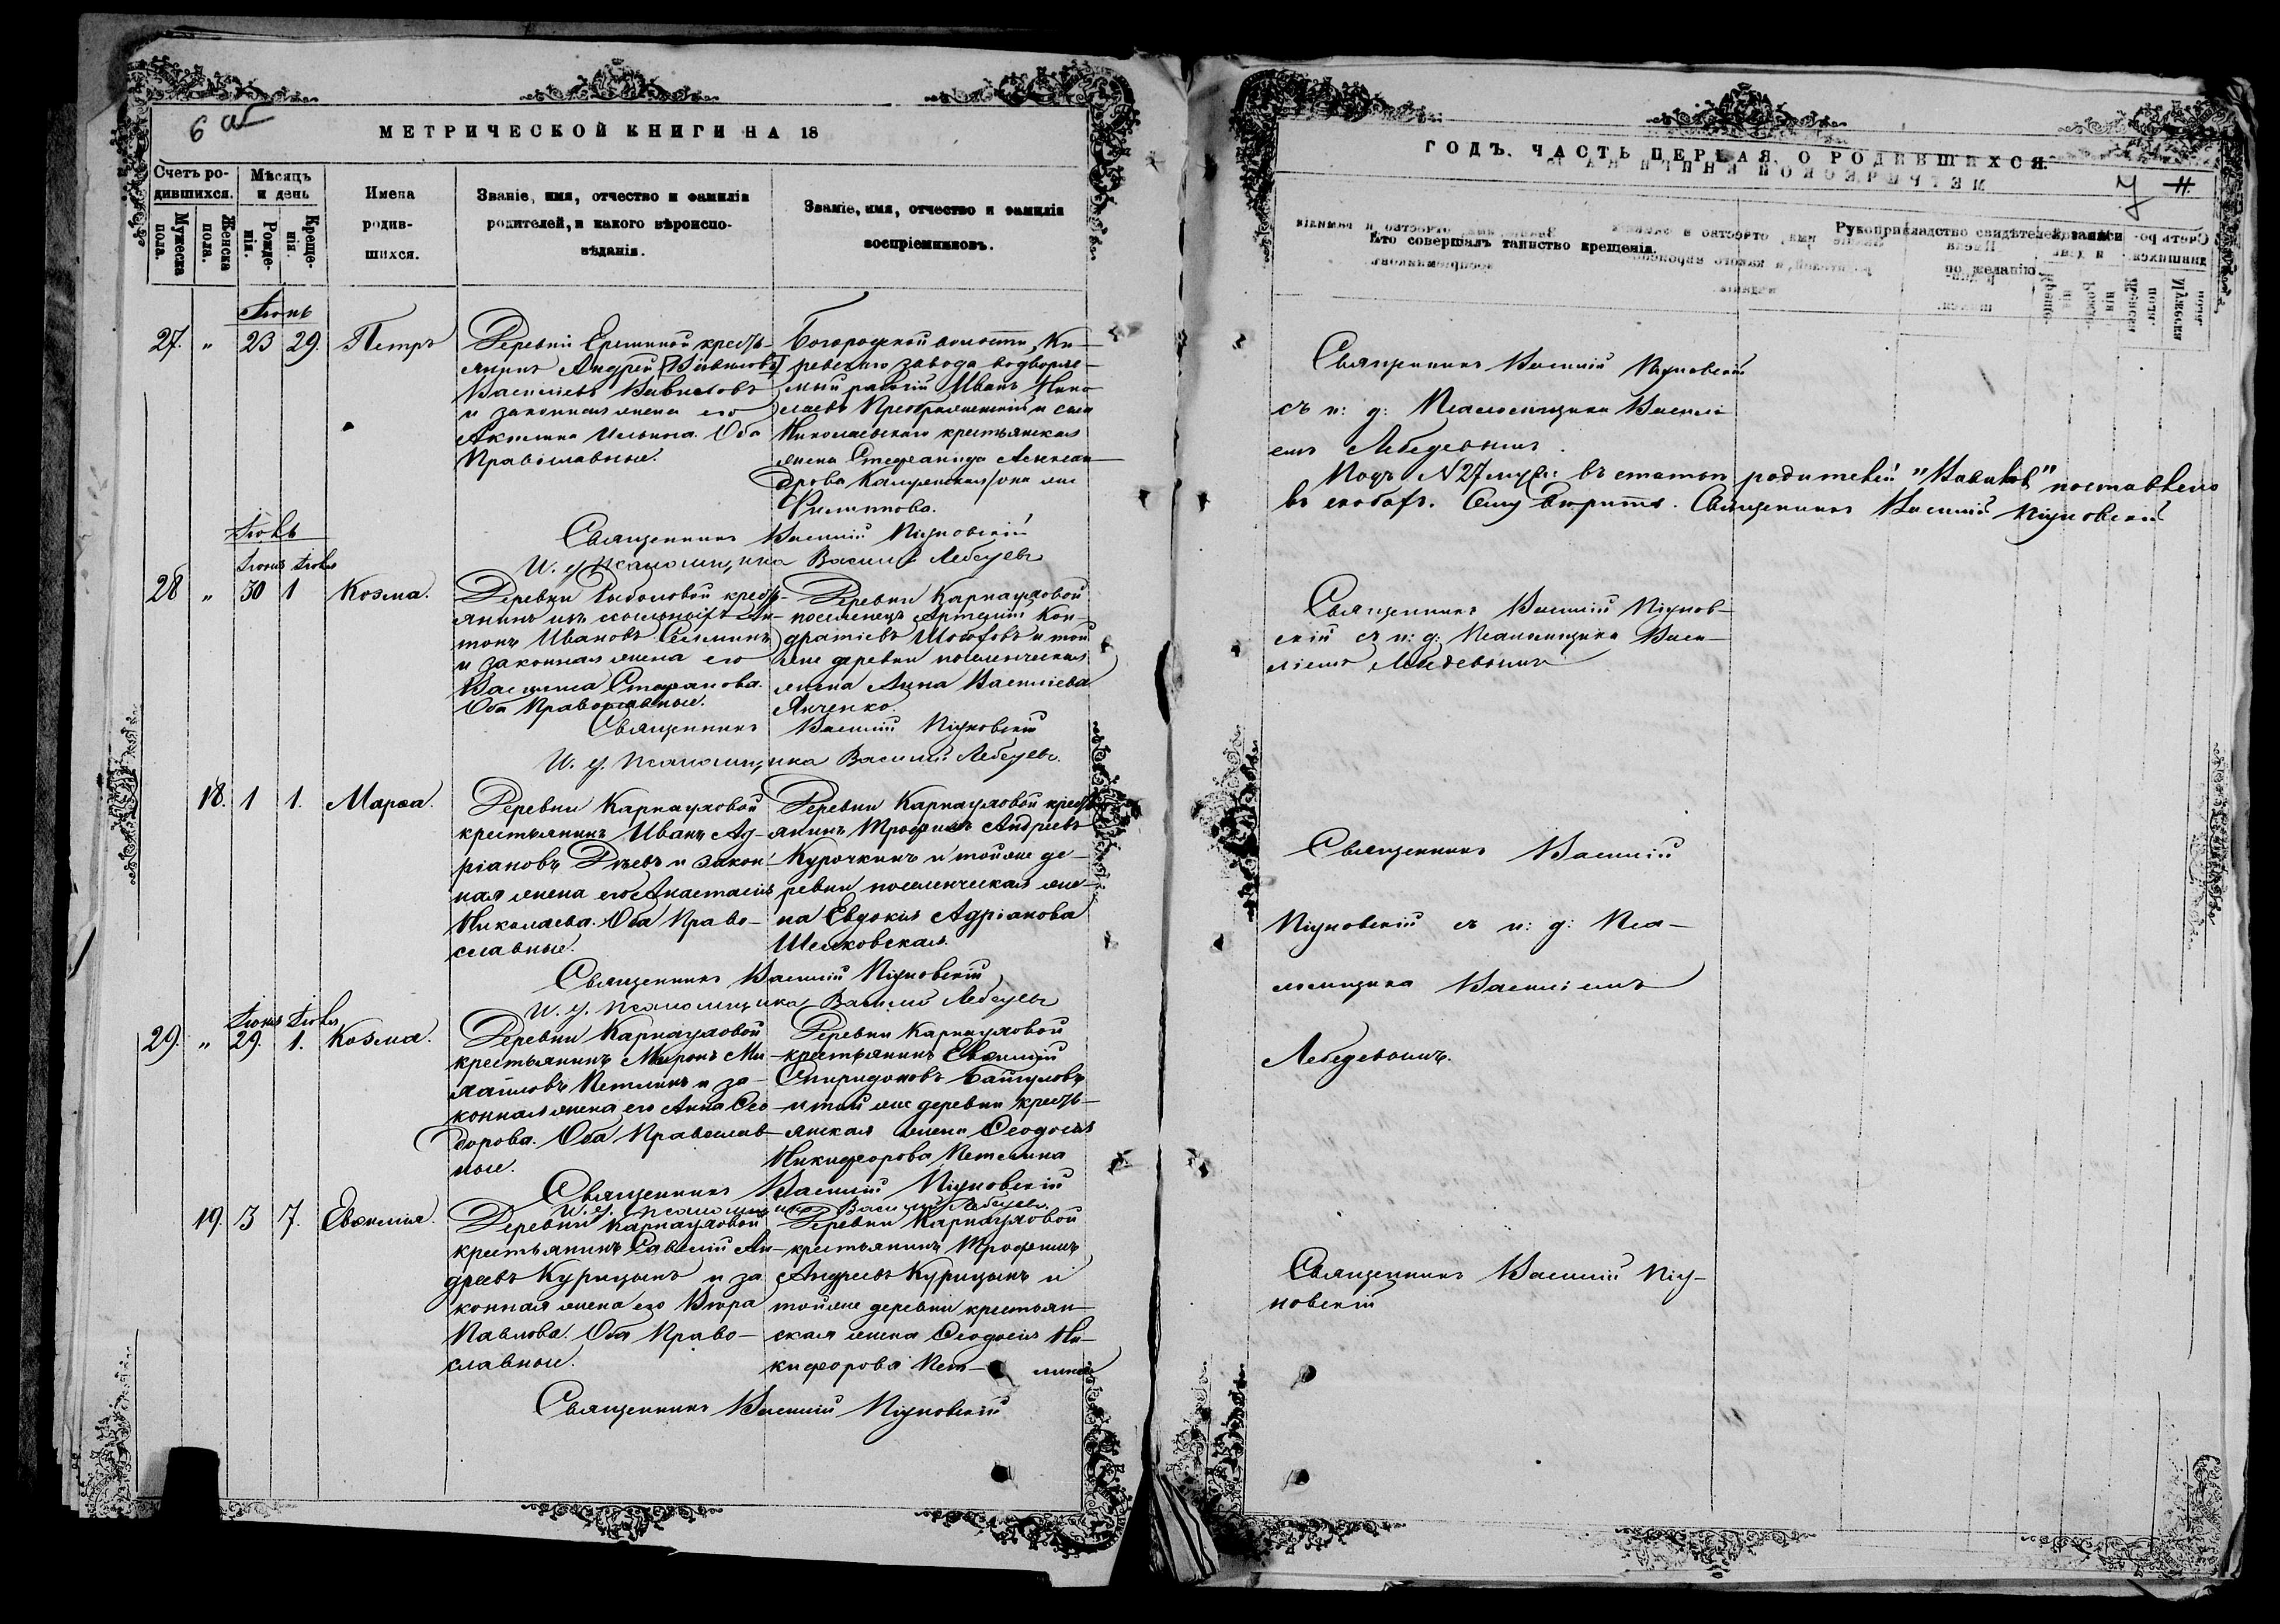 6 а
МЕТРИЧЕСКОЙ КНИГИ НА 18
Счетъ ро-
дившихся.
Мужеска пола.
Женска пола.
Мѣсяцъ
и день
Рожде-
нія.
Креще-
нія.
Имена
родив-
шихся.
Званіе, имя, отчество и фамилія
родителей, и какого вѣроиспо-
вѣданія.
Званіе, имя, отчество и фамилія
воспріемниковъ.
Іюнь
27. " 23 29. Петръ
Деревни Ереминой кресть-
янинъ Андрей [Вавиловъ]
Васильевъ Вавиловъ
и законная жена его
Акилина Ильина. Оба
Православные.
Богородской волости, Ки-
ревскаго завода водворяе-
мый рабочій Иванъ Нико-
лаевъ Преображенскій и села
Николаевскаго крестьянская
жена Стефанида Алексан-
дрова Калужская/она же
Филиппова.
Священникъ Василий Піуновскій
И. д. псаломщика Василій Лебедевъ
Іюль
Іюня Іюля
28 " 30 1 Козма.
Деревни кресть-
янинъ изъ ссыльныхъ Ан-
тонъ Ивановъ Селминъ
и законная жена его
Василиса Стефанова.
Оба Православные.
Деревни Карнауховой
поселенецъ Артемій Кон-
дратіевъ и той
же деревни поселенческая
жена Анна Василіева
Янченко.
Священникъ Василий Піуновскій
И. д. псаломщика Василий Лебедевъ.
18. 1 1. Марѳа.
Деревни Карнауховой
крестьянинъ Иванъ Ад-
ріановъ и закон-
ная жена его Анастасія
Николаева. Оба Право-
славные.
Деревни Карнауховой кресть-
янинъ Трофимъ Андреевъ
Курочкинъ и той же де-
ревни поселенческая же-
на Евдокія Адріанова
Шелковская.
Священникъ Василий Піуновскій
И. д. псаломщика Василий Лебедевъ
Іюня Іюля
29. " 29. 1. Козма.
Деревни Карнауховой
крестьянинъ Миронъ Ми-
хайловъ Петлинъ и за-
конная жена его Анна Ѳео-
дорова. Оба Православ-
ные.
Деревни Карнауховой
крестьянинъ Евѳимій
Спиридоновъ Байгуловъ
и той же деревни кресть-
янская жена Ѳеодосія
Никифорова Петлина
Священникъ Василий Піуновскій
И. д. псаломщика Василий Лебедевъ.
19. 3 7. Евѳимія.
Деревни Карнауховой
крестьянинъ Савелій Ан-
дреевъ Курицынъ и за-
конная жена его Вѣра
Павлова. Оба Право-
славные.
Деревни Карнауховой
крестьянинъ Трофимъ
Андреевъ Курицынъ и
той же деревни крестьян-
ская жена Ѳеодосія Ни-
кифорова Пет-лина
Священникъ Василий Піуновскій
ГОДЪ. ЧАСТЬ ПЕРВАЯ. О РОДИВШИХСЯ.
Кто совершалъ таинство крещенія.
Рукоприкладство свидѣтелей записи
по желанію
Священникъ Василий Піуновскій
съ и: д: Псаломщика Василі-
емъ Лебедевымъ.
Подъ N 27 муж: въ статьѣ родителей "Вавиловъ" поставлено
въ скобахъ. Сему вѣрить. Священникъ Василий Піуновскій
Священникъ Василий Піунов-
скій съ и: д: Псаломщика Васи-
ліемъ Лебедевымъ
Священникъ Василий
Піуновскій съ и: д: Пса-
ломщика Василіемъ
Лебедевымъ.
Священникъ Василий Піу-
новскій